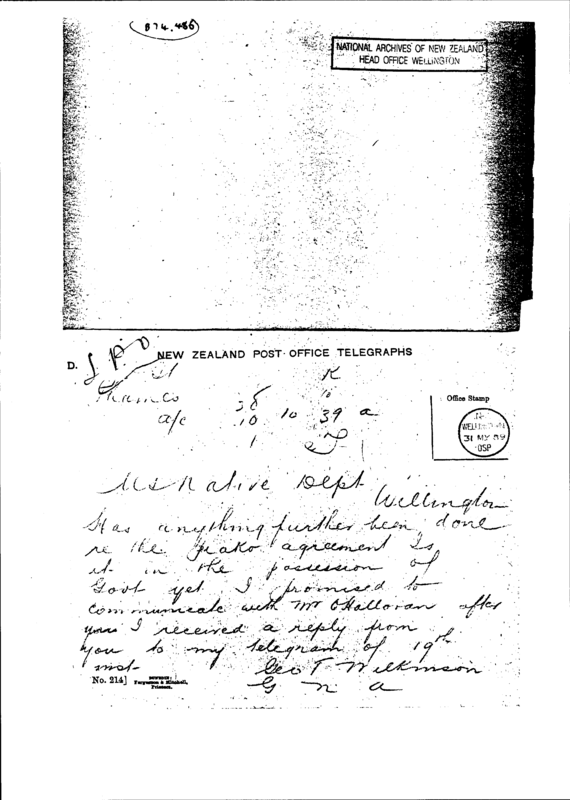 874.486
NATIONAL ARCHIVES OF NEW ZEALAND
HEAD OFFICE WELLINGTON
D.
NEW ZEALAND POST OFFICE TELEGRAPHS
K
Thames
10
a/c
10
10 39 a
1
Office Stamp
31 MY 89
OSP
U S Native Dept
Wellington
Has anything further been done
re the Piako agreement Is
it in the possession of
Govt yet I promised to
communicate with Mr O'Halloran after
I received a reply from
you to my telegram of 19th
inst
Geo T Wilkinson
G n a
No. 214]
Ferguson & Mitchell,
Printers.